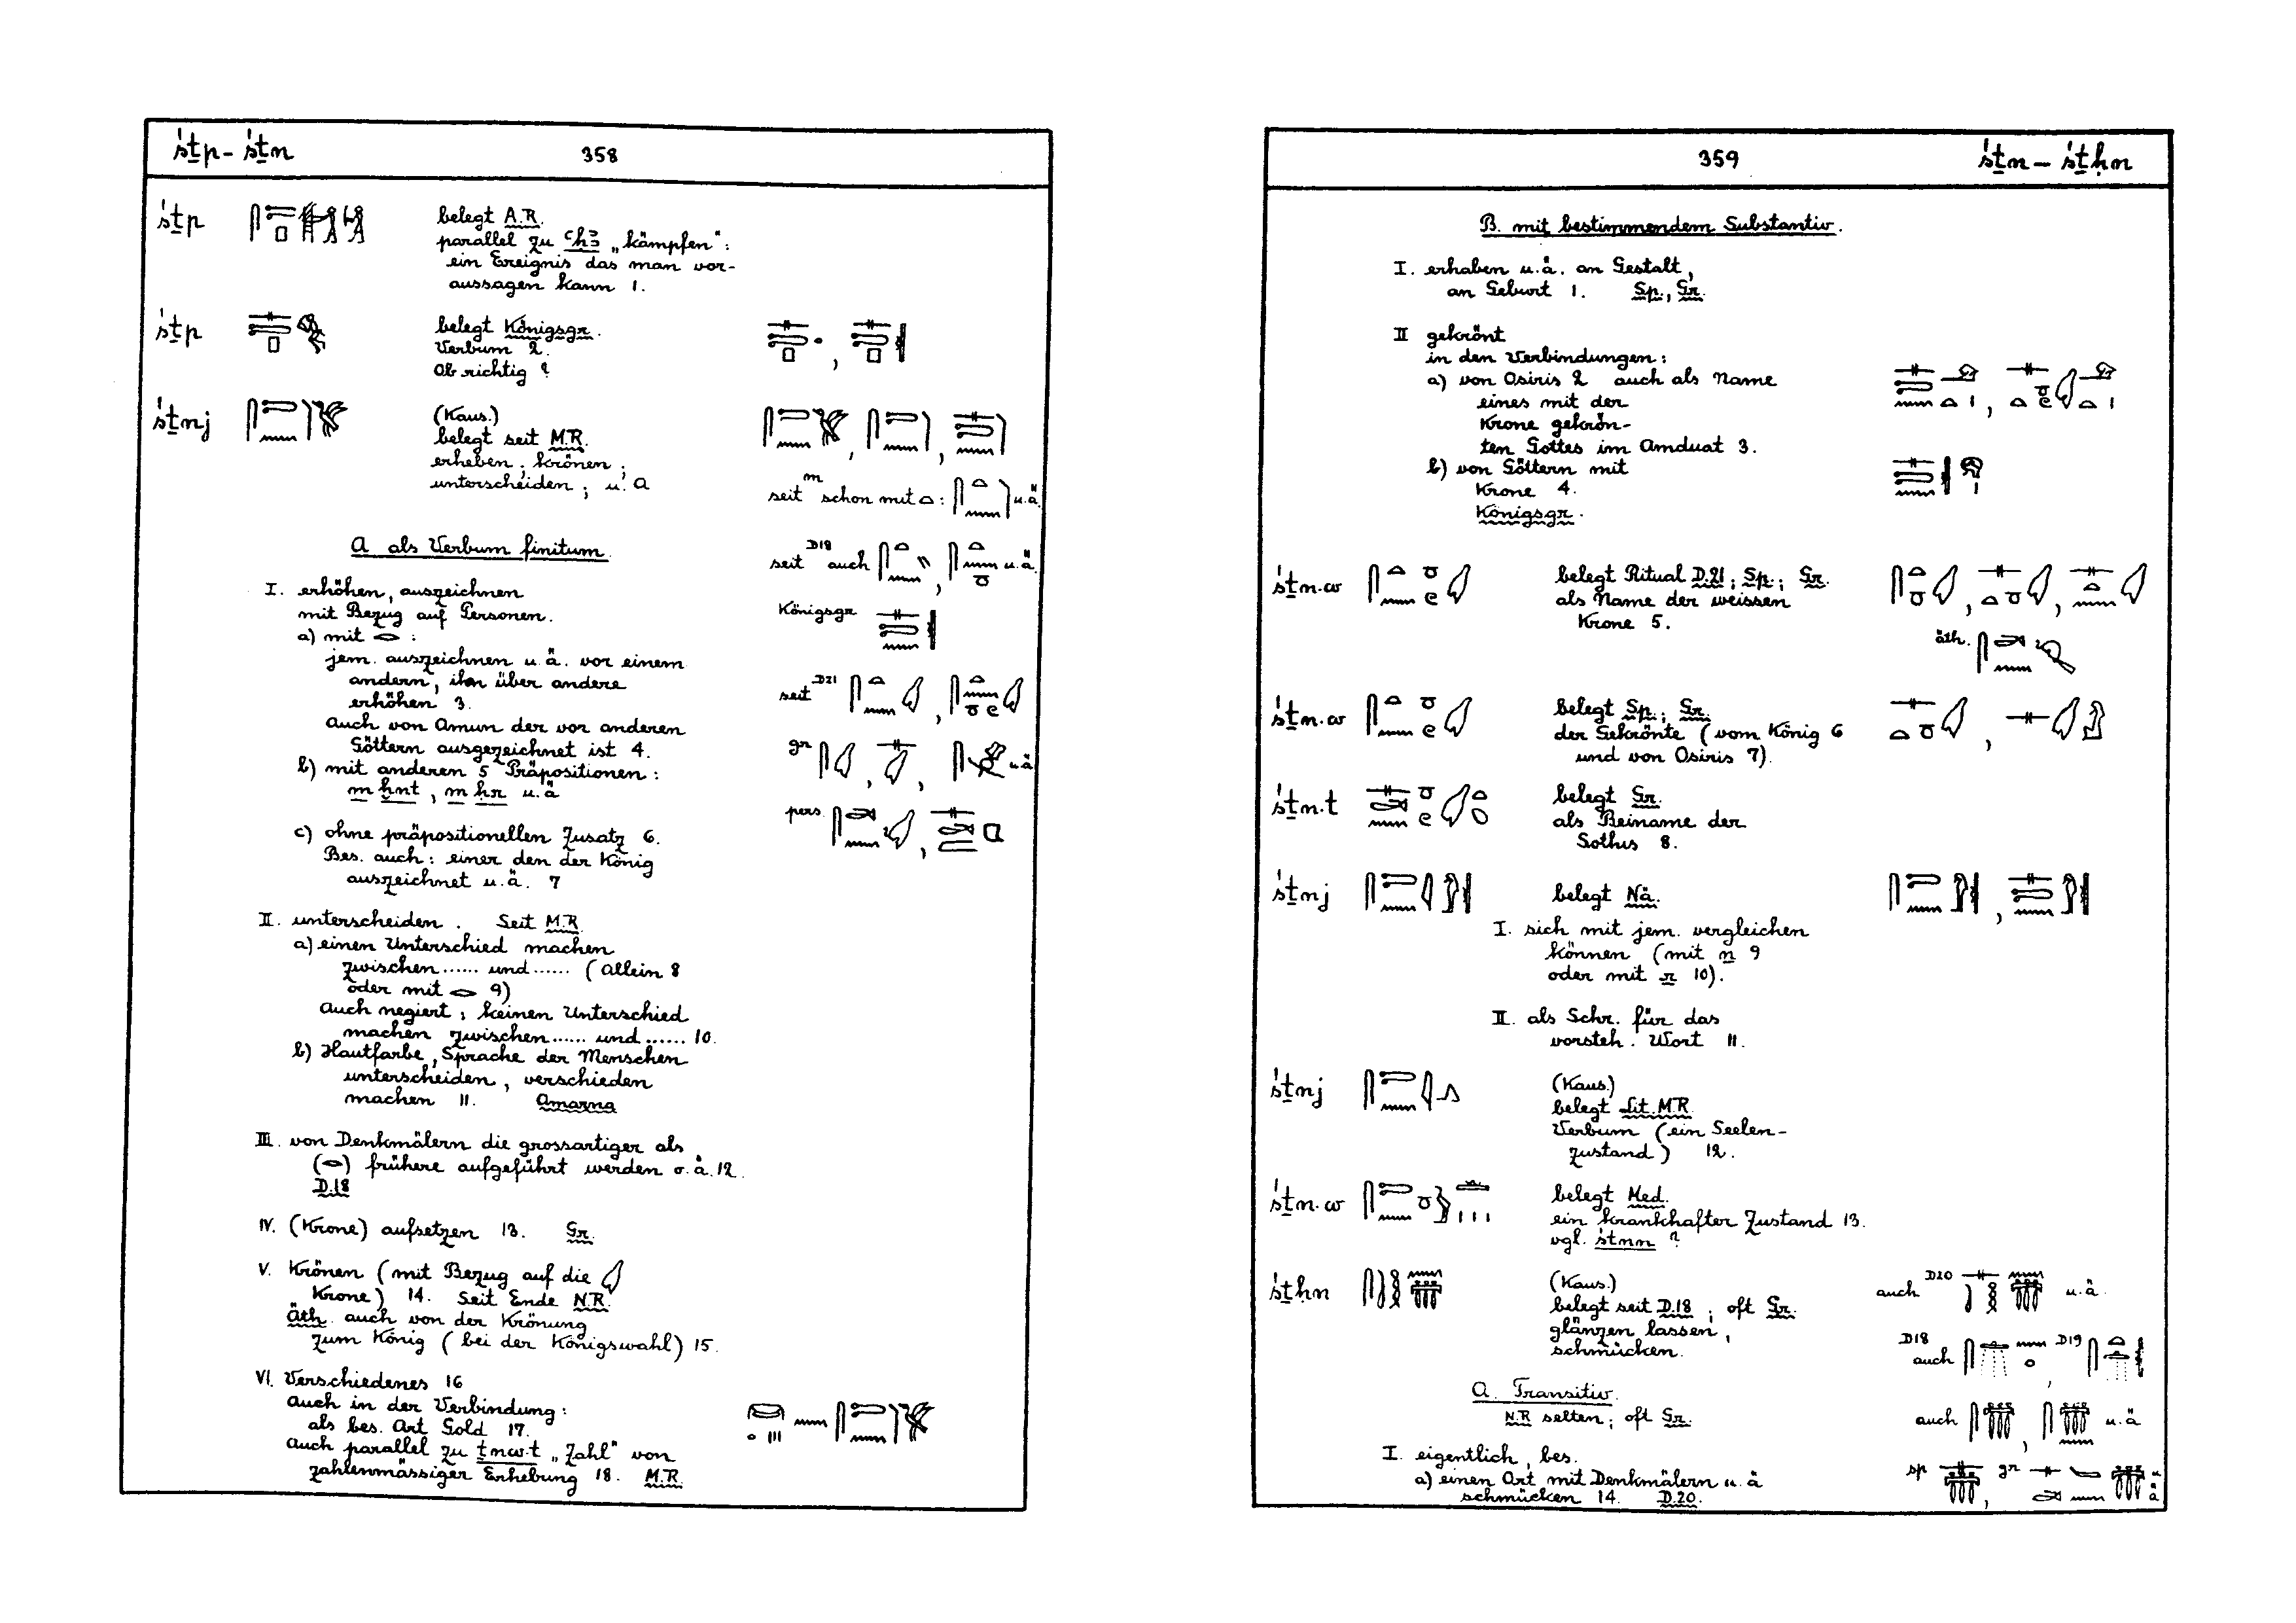 śṯp – śṯn 358
śṯp belegt A.R.
parallel zu ꜥḥꜣ „kämpfen“:
ein Ereignis das man vor-
aussagen kann 1.
śṯp belegt Königsgr.
Verbum 2.
Ob richtig ?
śṯnj (Kaus.)
belegt seit M.R.
erheben; krönen;
unterscheiden; u. a
seit m schon mit : u.ä.
A als Verbum finitum.
seit D18 auch , u.ä.
I. erhöhen, auszeichnen
mit Bezug auf Personen.
Königsgr
a) mit :
jem. auszeichnen u.ä. vor einem
andern, ihn über andere
erhöhen 3.
seit D21
auch von Amun der vor anderen
Göttern ausgezeichnet ist 4.
gr , , u.ä
b) mit anderen 5 Präpositionen:
m ḫnt, m ḥr u.ä
pers.
c) ohne präpositionellen Zusatz 6.
Bes. auch: einer den der König
auszeichnet u.ä. 7
II. unterscheiden. Seit M.R.
a) einen Unterschied machen
zwischen ...... und ...... (allein 8
oder mit 9)
auch negiert; keinen Unterschied
machen zwischen ...... und ...... 10.
b) Hautfarbe, Sprache der Menschen
unterscheiden, verschieden
machen 11. Amarna
III. von Denkmälern die grossartiger als
() frühere aufgeführt werden o.ä. 12.
D.18
IV. (Krone) aufsetzen 13. Gr.
V. Krönen (mit Bezug auf die
Krone) 14. Seit Ende N.R.
Äth. auch von der Krönung
zum König (bei der Königswahl) 15.
VI. Verschiedenes 16
auch in der Verbindung:
als bes. Art Gold 17.
auch parallel zu ṯnw.t „Zahl“ von
zahlenmässiger Erhebung 18. M.R.
359 śṯn – śṯḥn
B. mit bestimmendem Substantiv.
I. erhaben u.ä. an Gestalt,
an Geburt 1. Sp., Gr.
II gekrönt
in den Verbindungen:
a) von Osiris 2 auch als Name
eines mit der
Krone gekrön-
ten Gottes im Amduat 3.
b) von Göttern mit
Krone 4.
Königsgr.
śṯn.w belegt Ritual D.21; Sp.; Gr.
als Name der weissen
Krone 5.
äth.
śṯn.w belegt Sp.; Gr.
der Gekrönte (vom König 6
und von Osiris 7).
śṯn.t belegt Gr.
als Beiname der
Sothis 8.
śṯnj belegt Nä.
I. sich mit jem. vergleichen
können (mit n 9
oder mit r 10).
II. als Schr. für das
vorsteh. Wort 11.
śṯnj (Kaus.)
belegt Lit. M.R
Verbum (ein Seelen-
zustand) 12.
śṯn.w belegt Med.
ein krankhafter Zustand 13.
vgl. śtnn ?
śṯḥn (Kaus.)
belegt seit D.18; oft Gr.
glänzen lassen,
schmücken.
auch D20 u.ä.
D18 auch , D19
A. Transitiv.
N.R selten; oft Gr.
auch , u.ä
I. eigentlich, bes.
a) einen Ort mit Denkmälern u.ä
schmücken 14. D.20.
sp , gr u.ä